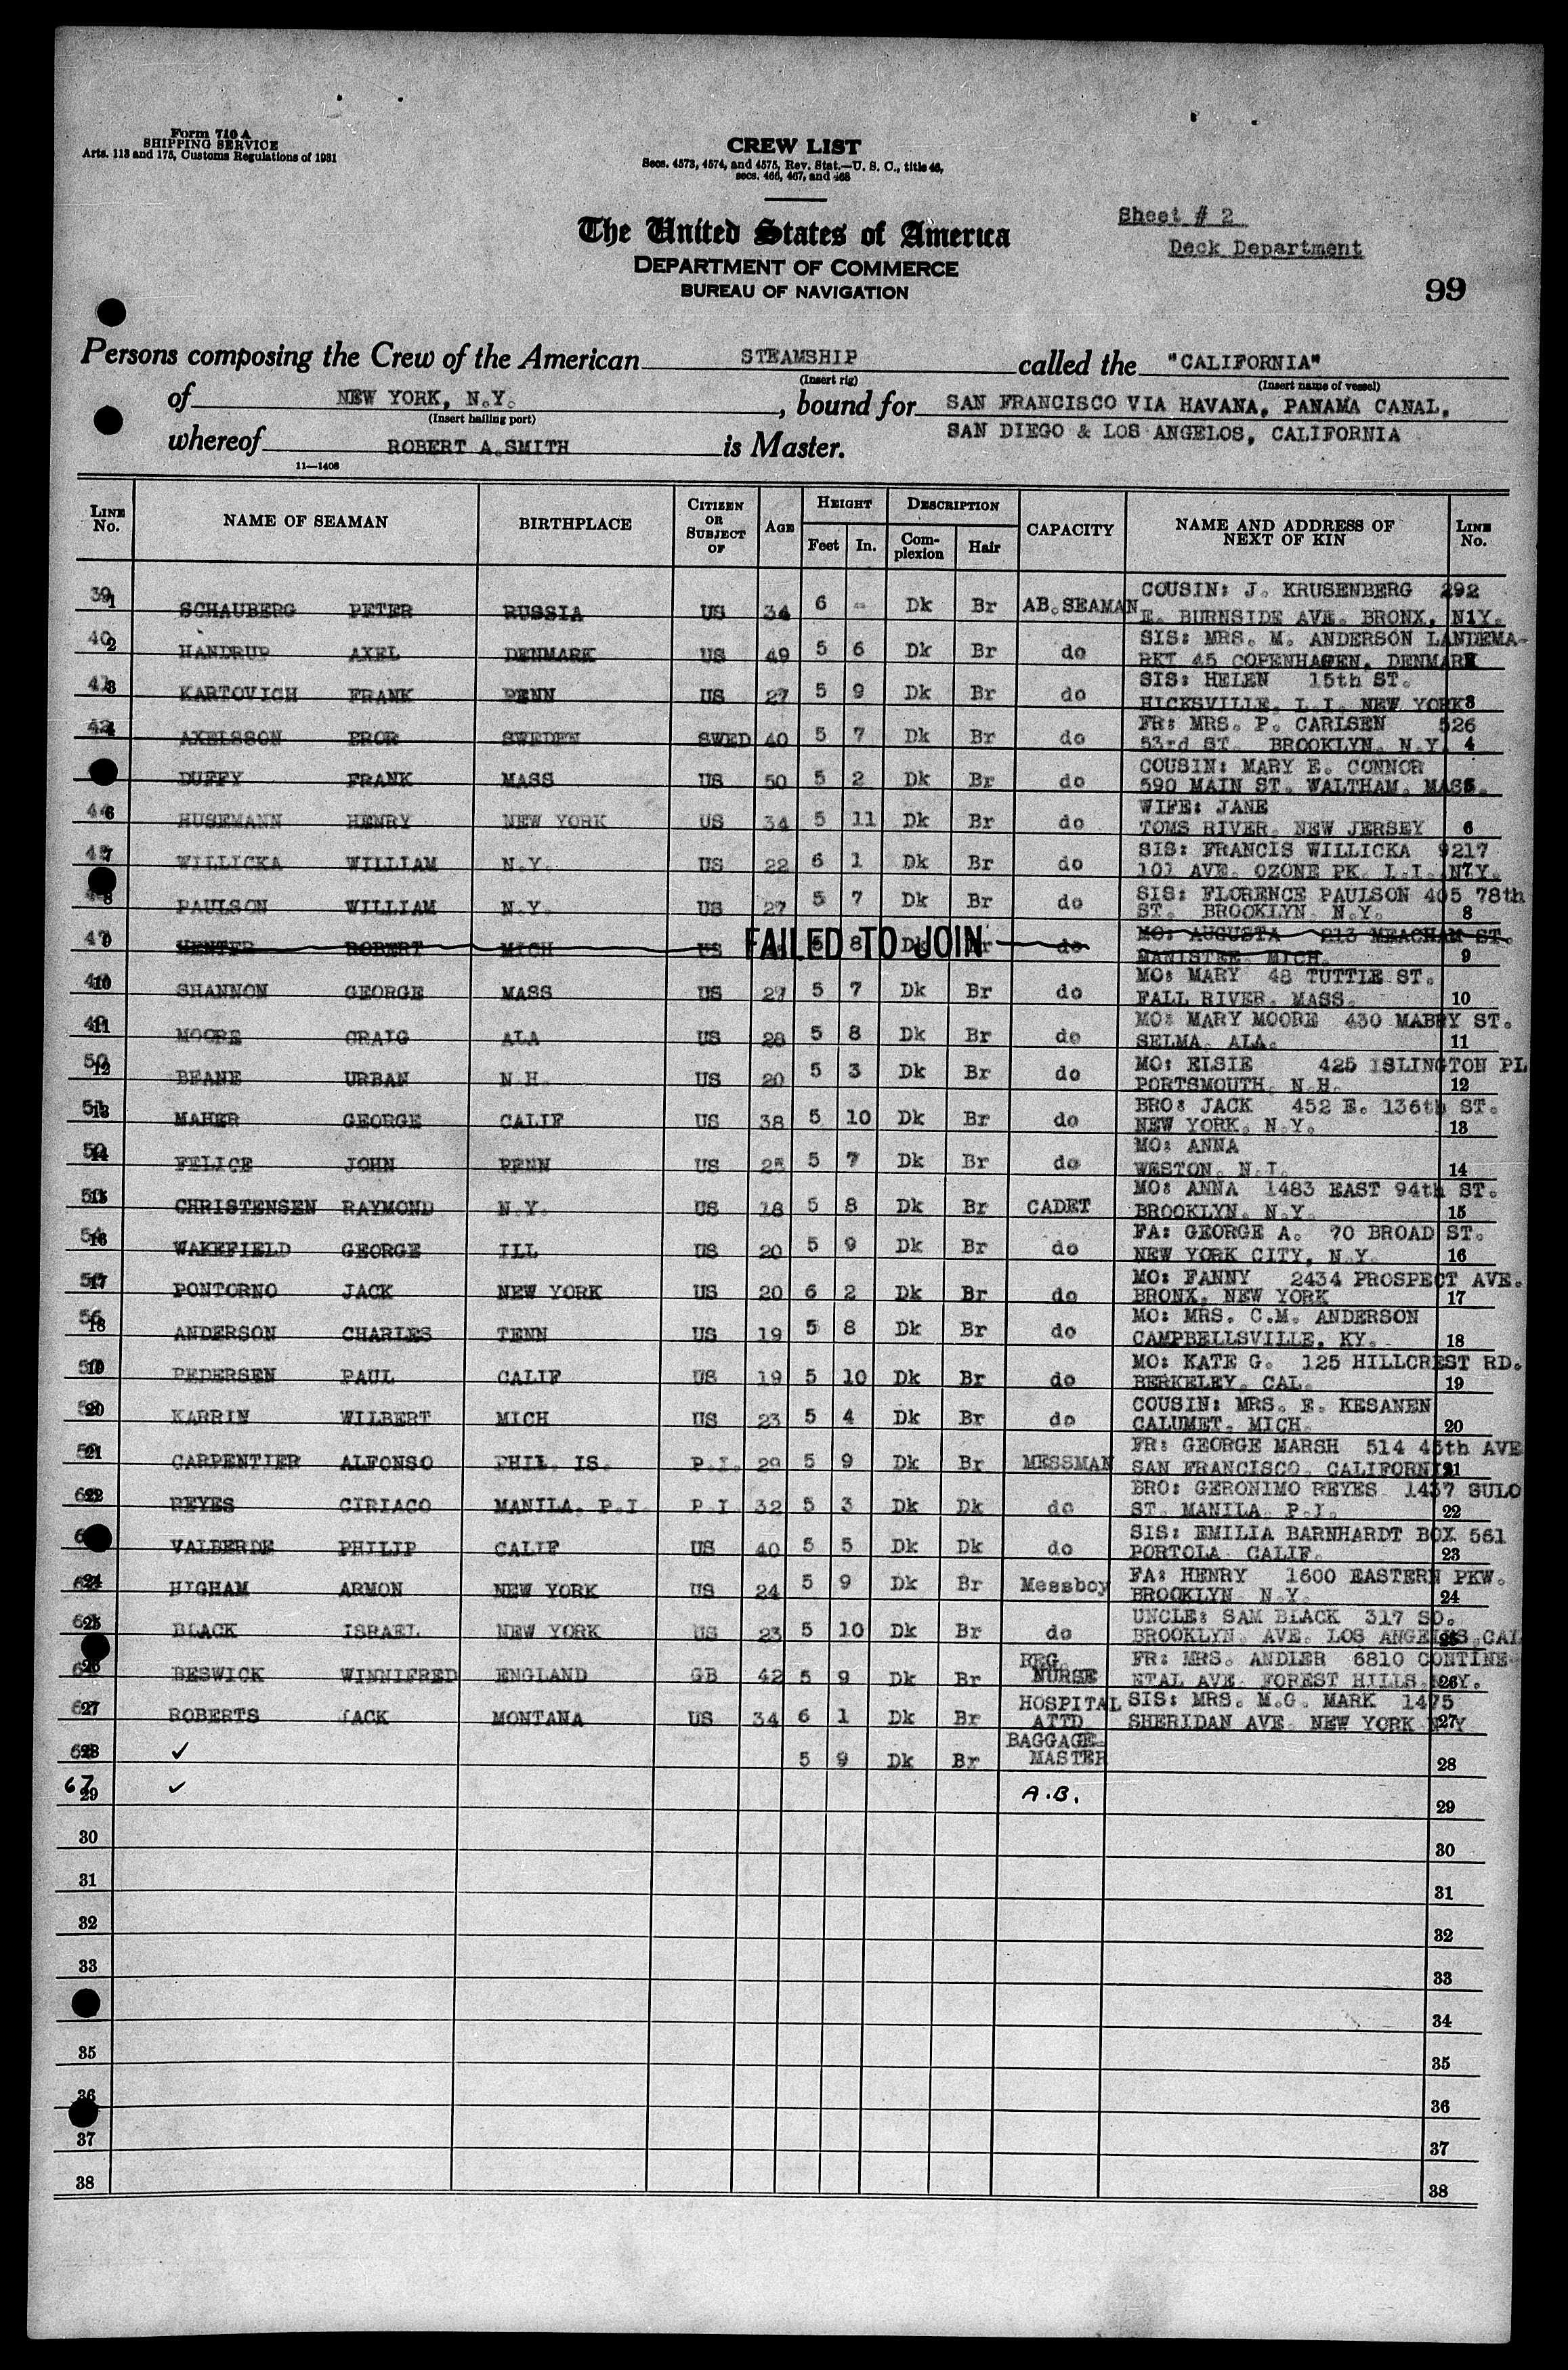 Form 710 A
SHIPPING SERVICE
Arts. 113 and 175, Customs Regulations of 1931
CREW LIST
Secs. 4573, 4574, and 4575, Rev. Stat.—U. S. C., title 46,
secs. 466, 467, and 468
Sheet # 2
The United States of America
Deck Department
DEPARTMENT OF COMMERCE
BUREAU OF NAVIGATION
99
Persons composing the Crew of the American STEAMSHIP called the "CALIFORNIA"
(Insert rig) (Insert name of vessel)
of NEW YORK, N.Y. , bound for SAN FRANCISCO VIA HAVANA, PANAMA CANAL,
(Insert hailing port)
whereof ROBERT A.SMITH is Master. SAN DIEGO & LOS ANGELOS, CALIFORNIA
11—1408
LINE No. NAME OF SEAMAN BIRTHPLACE CITIZEN OR SUBJECT OF AGE HEIGHT Feet In. DESCRIPTION Complexion Hair CAPACITY NAME AND ADDRESS OF NEXT OF KIN LINE No.
39 1 SCHAUBERG PETER RUSSIA US 34 6 - Dk Br AB.SEAMAN COUSIN: J. KRUSENBERG 292
E. BURNSIDE AVE. BRONX, N.Y. 1
40 2 HANDRUP AXEL DENMARK US 49 5 6 Dk Br do SIS: MRS. M. ANDERSON LANDEMA-
RKT 45 COPENHAGEN, DENMARK
41 3 KARTOVICH FRANK PENN US 27 5 9 Dk Br do SIS: HELEN 15th ST.
HICKSVILLE, L.I. NEW YORK 3
42 4 AXELSSON BROR SWEDEN SWED 40 5 7 Dk Br do FR: MRS. P. CARLSEN 526
53rd ST. BROOKLYN. N.Y. 4
DUFFY FRANK MASS US 50 5 2 Dk Br do COUSIN: MARY E. CONNOR
590 MAIN ST. WALTHAM. MASS. 5
44 6 HUSEMANN HENRY NEW YORK US 34 5 11 Dk Br do WIFE: JANE
TOMS RIVER. NEW JERSEY 6
45 7 WILLICKA WILLIAM N.Y. US 22 6 1 Dk Br do SIS: FRANCIS WILLICKA 9217
101 AVE. OZONE PK. L.I. N.Y. 7
8 PAULSON WILLIAM N.Y. US 27 5 7 Dk Br do SIS: FLORENCE PAULSON 405 78th
ST. BROOKLYN. N.Y. 8
47 9 ROBERT MICH US FAILED TO JOIN 8 do MO: AUGUSTA 213 MEACHAM ST.
MANISTEE MICH. 9
10 SHANNON GEORGE MASS US 27 5 7 Dk Br do MO: MARY 48 TUTTLE ST.
FALL RIVER. MASS. 10
49 11 MOORE CRAIG ALA US 28 5 8 Dk Br do MO: MARY MOORE 430 MABRY ST.
SELMA. ALA. 11
50 12 BEANE URBAN N.H. US 20 5 3 Dk Br do MO: ELSIE 425 ISLINGTON PL
PORTSMOUTH. N.H. 12
51 13 MAHER GEORGE CALIF US 38 5 10 Dk Br do BRO: JACK 452 E. 136th ST.
NEW YORK. N.Y. 13
14 FELICE JOHN PENN US 25 5 7 Dk Br do MO: ANNA
WESTON. N.J. 14
15 CHRISTENSEN RAYMOND N.Y. US 18 5 8 Dk Br CADET MO: ANNA 1483 EAST 94th ST.
BROOKLYN. N.Y. 15
54 16 WAKEFIELD GEORGE ILL US 20 5 9 Dk Br do FA: GEORGE A. 70 BROAD ST.
NEW YORK CITY, N.Y. 16
17 PONTORNO JACK NEW YORK US 20 6 2 Dk Br do MO: FANNY 2434 PROSPECT AVE.
BRONX. NEW YORK 17
56 18 ANDERSON CHARLES TENN US 19 5 8 Dk Br do MO: MRS. C.M. ANDERSON
CAMPBELLSVILLE, KY. 18
19 PEDERSEN PAUL CALIF US 19 5 10 Dk Br do MO: KATE G. 125 HILLCREST RD.
BERKELEY. CAL. 19
20 KARRIN WILBERT MICH US 23 5 4 Dk Br do COUSIN: MRS. E. KESANEN
CALUMET. MICH. 20
21 CARPENTIER ALFONSO PHIL. IS. P.I. 29 5 9 Dk Br MESSMAN FR: GEORGE MARSH 514 45th AVE
SAN FRANCISCO. CALIFORNIA 21
22 REYES CIRIACO MANILA. P.I. P.I. 32 5 3 Dk Dk do BRO: GERONIMO REYES 1437 SULO
ST. MANILA. P.I. 22
VALBERDE PHILIP CALIF US 40 5 5 Dk Dk do SIS: EMILIA BARNHARDT BOX 561
PORTOLA CALIF. 23
24 HIGHAM ARMON NEW YORK US 24 5 9 Dk Br Messboy FA: HENRY 1600 EASTERN PKW.
BROOKLYN N.Y. 24
25 BLACK ISRAEL NEW YORK US 23 5 10 Dk Br do UNCLE: SAM BLACK 317 SO.
BROOKLYN. AVE. LOS ANGELES.CAL 25
26 BESWICK WINNIFRED ENGLAND GB 42 5 9 Dk Br REG. NURSE FR: MRS. ANDLER 6810 CONTINE-
NTAL AVE. FOREST HILLS N.Y. 26
27 ROBERTS JACK MONTANA US 34 6 1 Dk Br HOSPITAL ATTD SIS: MRS. M.G. MARK 1475
SHERIDAN AVE NEW YORK N Y 27
28 ✓ 5 9 Dk Br BAGGAGE-MASTER 28
67 29 ✓ A.B. 29
30 30
31 31
32 32
33 33
34
35 35
36 36
37 37
38 38